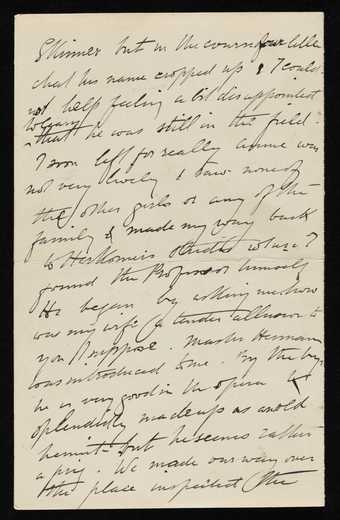 Skinner but in the course of our little
chat his name cropped up & I could
not help feeling a bit disappointed
to learn
that he was still in the field.
I soon left for really Annie was
not very lively & I saw none of
the other girls or any of the
family & made my way back
to Herkomer's studio where I
found the Professor himself
He began by asking me how
was my wife (a tender allusion to
you I suppose. Master Herman
was introduced to me. By the bye
he is very good in the opera &
splendidly made up as an old
hermit but he seems rather
a prig. We made our way over
the place inspected the